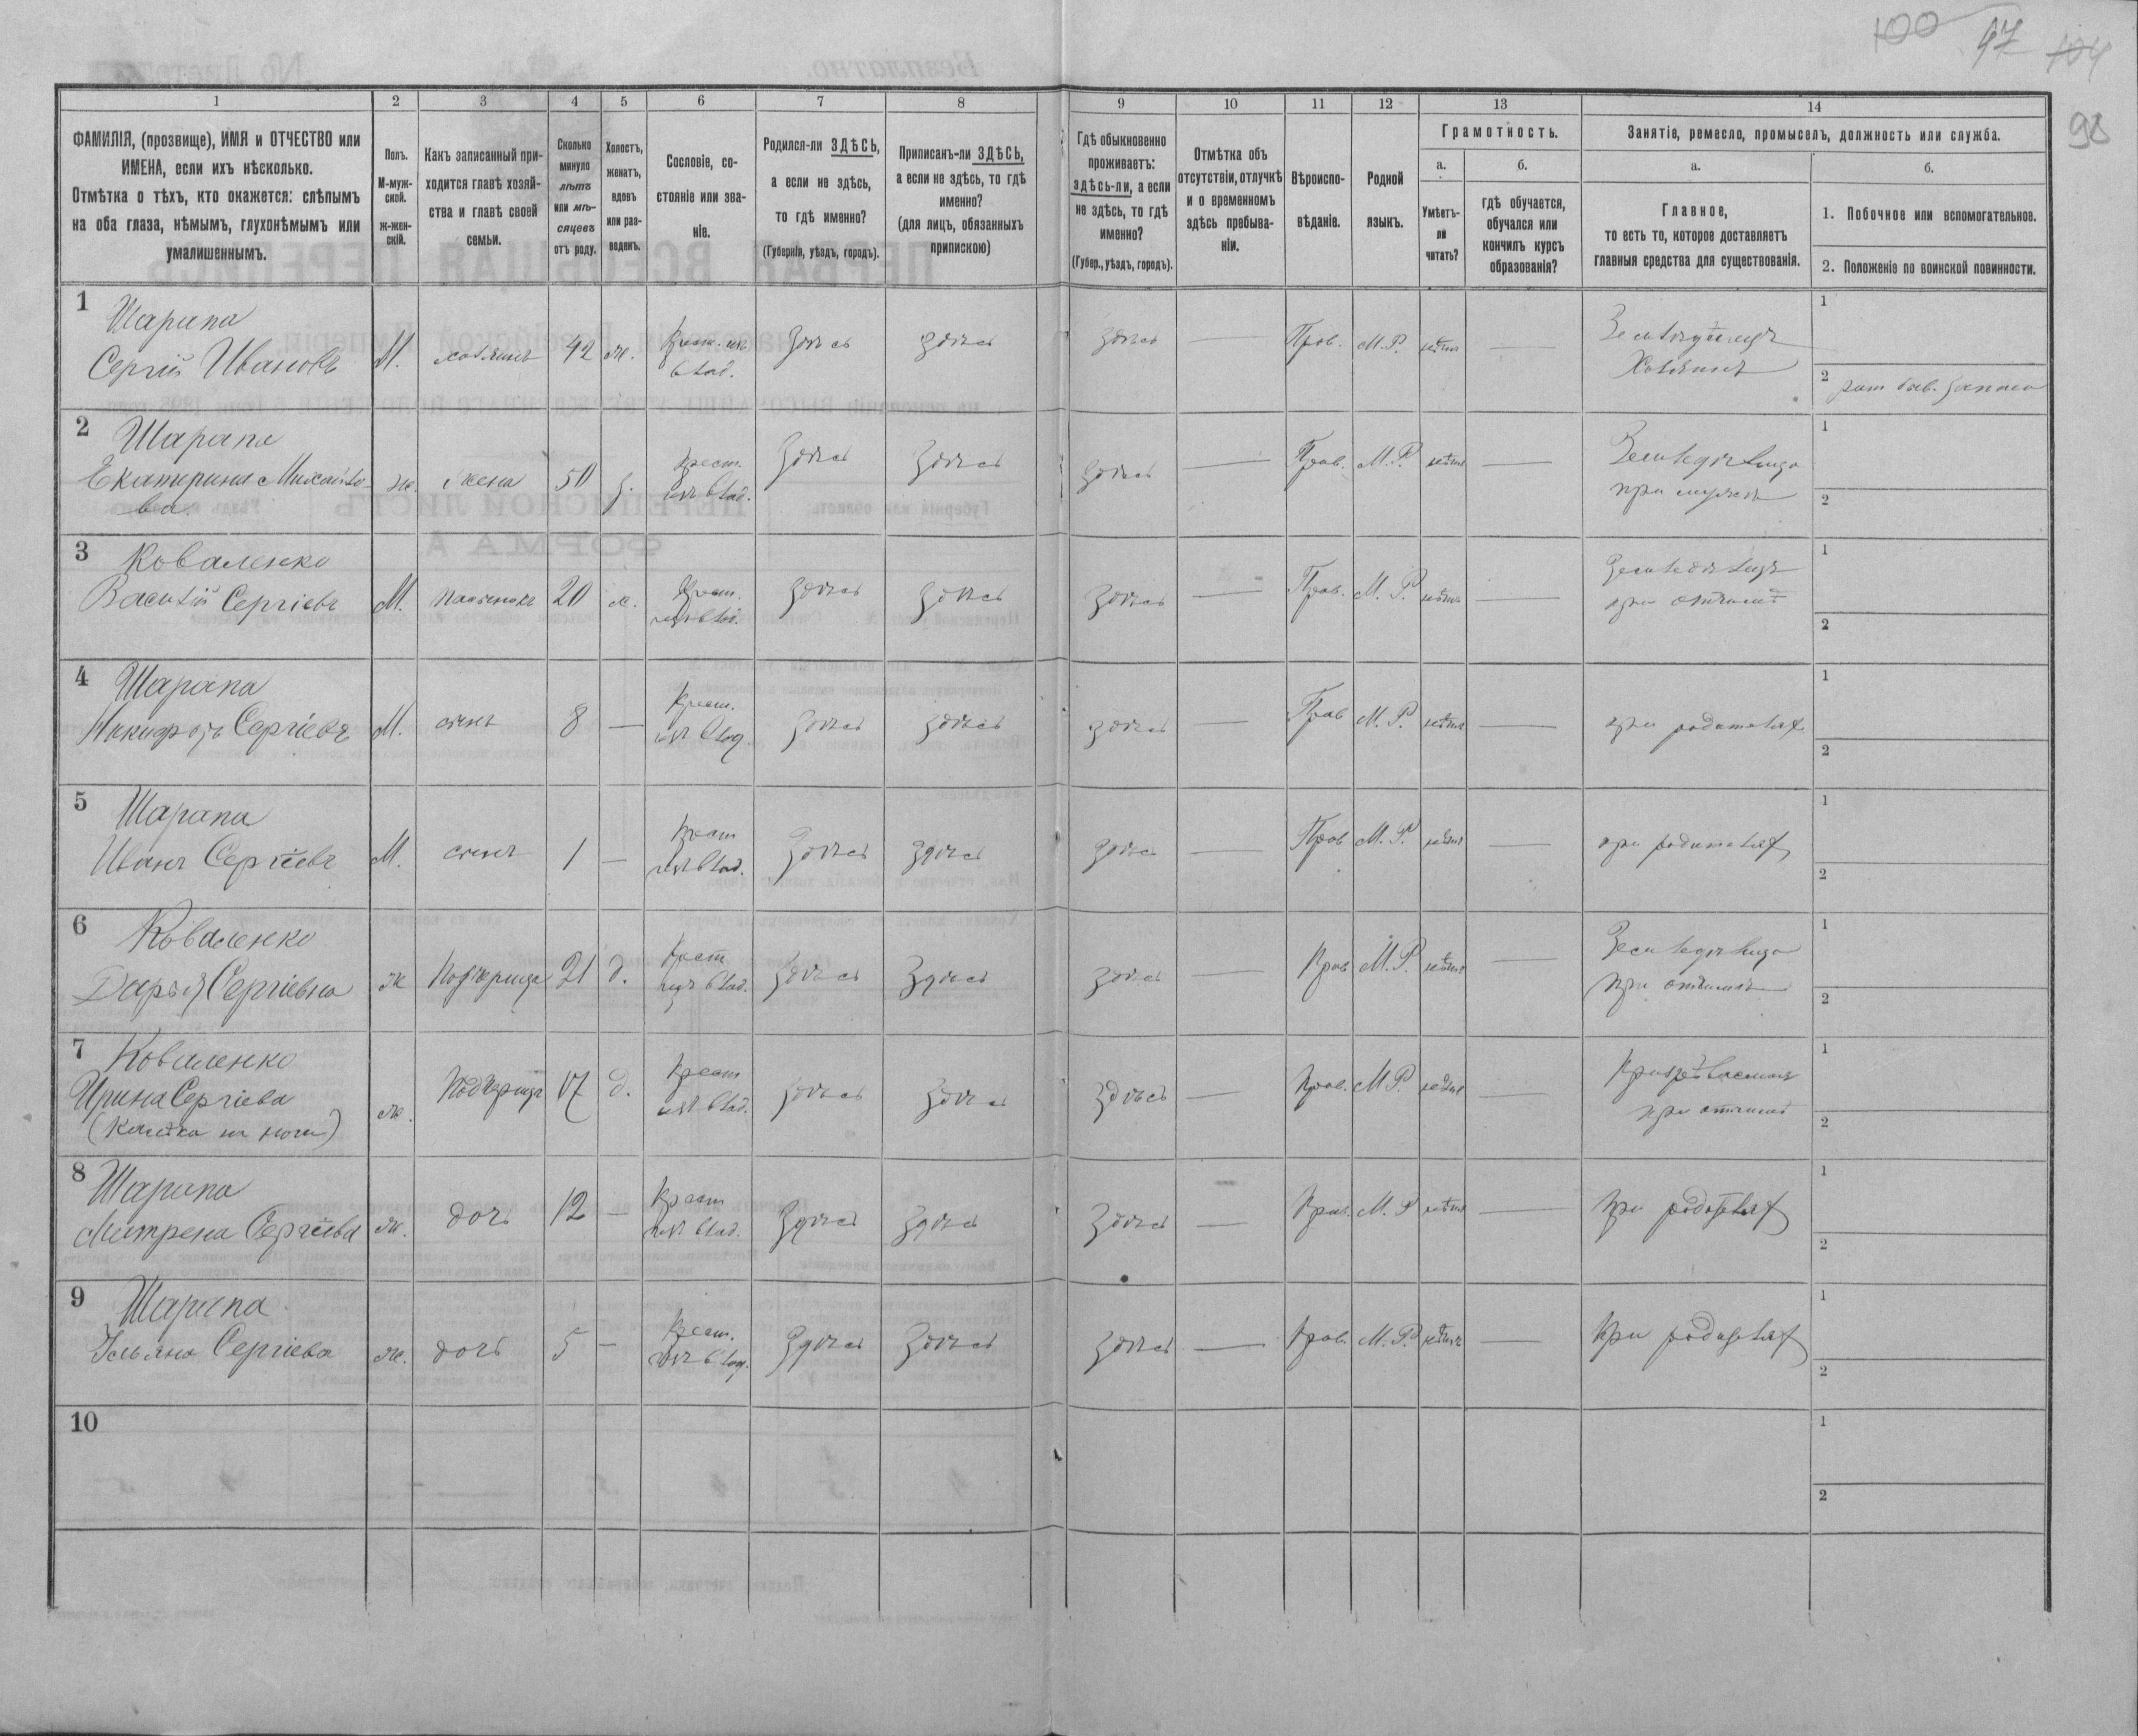 100 97 104
98
1 2 3 4 5 6 7 8 9 10 11 12 13 14
ФАМИЛІЯ, (прозвище), ИМЯ и ОТЧЕСТВО или
ИМЕНА, если ихъ нѣсколько.
Отмѣтка о тѣхъ, кто окажется: слѣпымъ
на оба глаза, нѣмымъ, глухонѣмымъ или
умалишеннымъ.
Полъ.
М-муж-
ской.
ж-жен-
скій.
Какъ записанный при-
ходится главѣ хозяй-
ства и главѣ своей
семьи.
Сколько
минуло
лѣтъ
или мѣ-
сяцевъ
отъ роду.
Холостъ,
женатъ,
вдовъ
или раз-
веденъ.
Сословіе, со-
стояніе или зва-
ніе.
Родился-ли ЗДѢСЬ,
а если не здѣсь,
то гдѣ именно?
(Губернія, уѣздъ, городъ).
Приписанъ-ли ЗДѢСЬ,
а если не здѣсь, то гдѣ
именно?
(для лицъ, обязанныхъ
припискою)
Гдѣ обыкновенно
проживаетъ:
здѣсь-ли, а если
не здѣсь, то гдѣ
именно?
(Губер., уѣздъ, городъ).
Отмѣтка объ
отсутствіи, отлучкѣ
и о временномъ
здѣсь пребыва-
ніи.
Вѣроиспо-
вѣданіе.
Родной
языкъ.
Грамотность.
а.
Умѣетъ-
ли
читать?
б.
гдѣ обучается,
обучался или
кончилъ курсъ
образованія?
Занятіе, ремесло, промыселъ, должность или служба.
а.
Главное,
то есть то, которое доставляетъ
главныя средства для существованія.
б.
1. Побочное или вспомогательное.
2. Положеніе по воинской повинности.
1 Шарапа
Сергій Ивановъ
М. хозяинъ 42 ж. Крест. изъ
влад. Здѣсь здѣсь здѣсь — Пров. М.Р. нѣтъ —
Земледѣлецъ
Хозяинъ
1
2
2 Шарапа
Екатерина Михайло-
ва
ж. жена 50 з. Крест.
изъ влад. Здѣсь Здѣсь здѣсь — Прав. М.Р. нѣтъ —
Земледѣлица
при мужѣ
1
2
3 Коваленко
Василій Сергіевъ
М. пасынокъ 20 х. Крест.
изъ влад. здѣсь здѣсь здѣсь — Прав. М. Р. нѣтъ —
Земледѣлецъ
при отчимѣ
1
2
4 Шарапа
Никифоръ Сергіевъ
М. сынъ 8 — Крест.
изъ влад. здѣсь здѣсь здѣсь — Прав М. Р. нѣтъ —
при родителях
1
2
5 Шарапа
Иванъ Сергіевъ
М. сынъ 1 — Крест
изъ влад. Здѣсь здѣсь здѣсь — Прав М. Р. нѣтъ —
при родителях
1
2
6 Коваленко
Дарья Сергіевна
ж Подчерица 21 д. Крест
изъ влад. Здѣсь Здѣсь здѣсь — Прав М. Р. нѣтъ —
Земледѣлица
при отчимѣ
1
2
7 Коваленко
Ирина Сергіева
ж. Подчерица 17 д. Крест
изъ влад. здѣсь здѣсь здѣсь — Прав. М Р. нѣтъ —
при отчимѣ
1
2
8 Шарапа
Матрена Сергіева
ж. дочь 12 — Крест
изъ влад. Здѣсь Здѣсь Здѣсь — Прав. М. Р нѣтъ —
При родителях
1
2
9 Шарапа
Ульяна Сергіева
ж. дочь 5 — Крест.
изъ влад. Здѣсь Здѣсь здѣсь — Прав. М. Р. нѣтъ —
При родителях
1
2
10
1
2